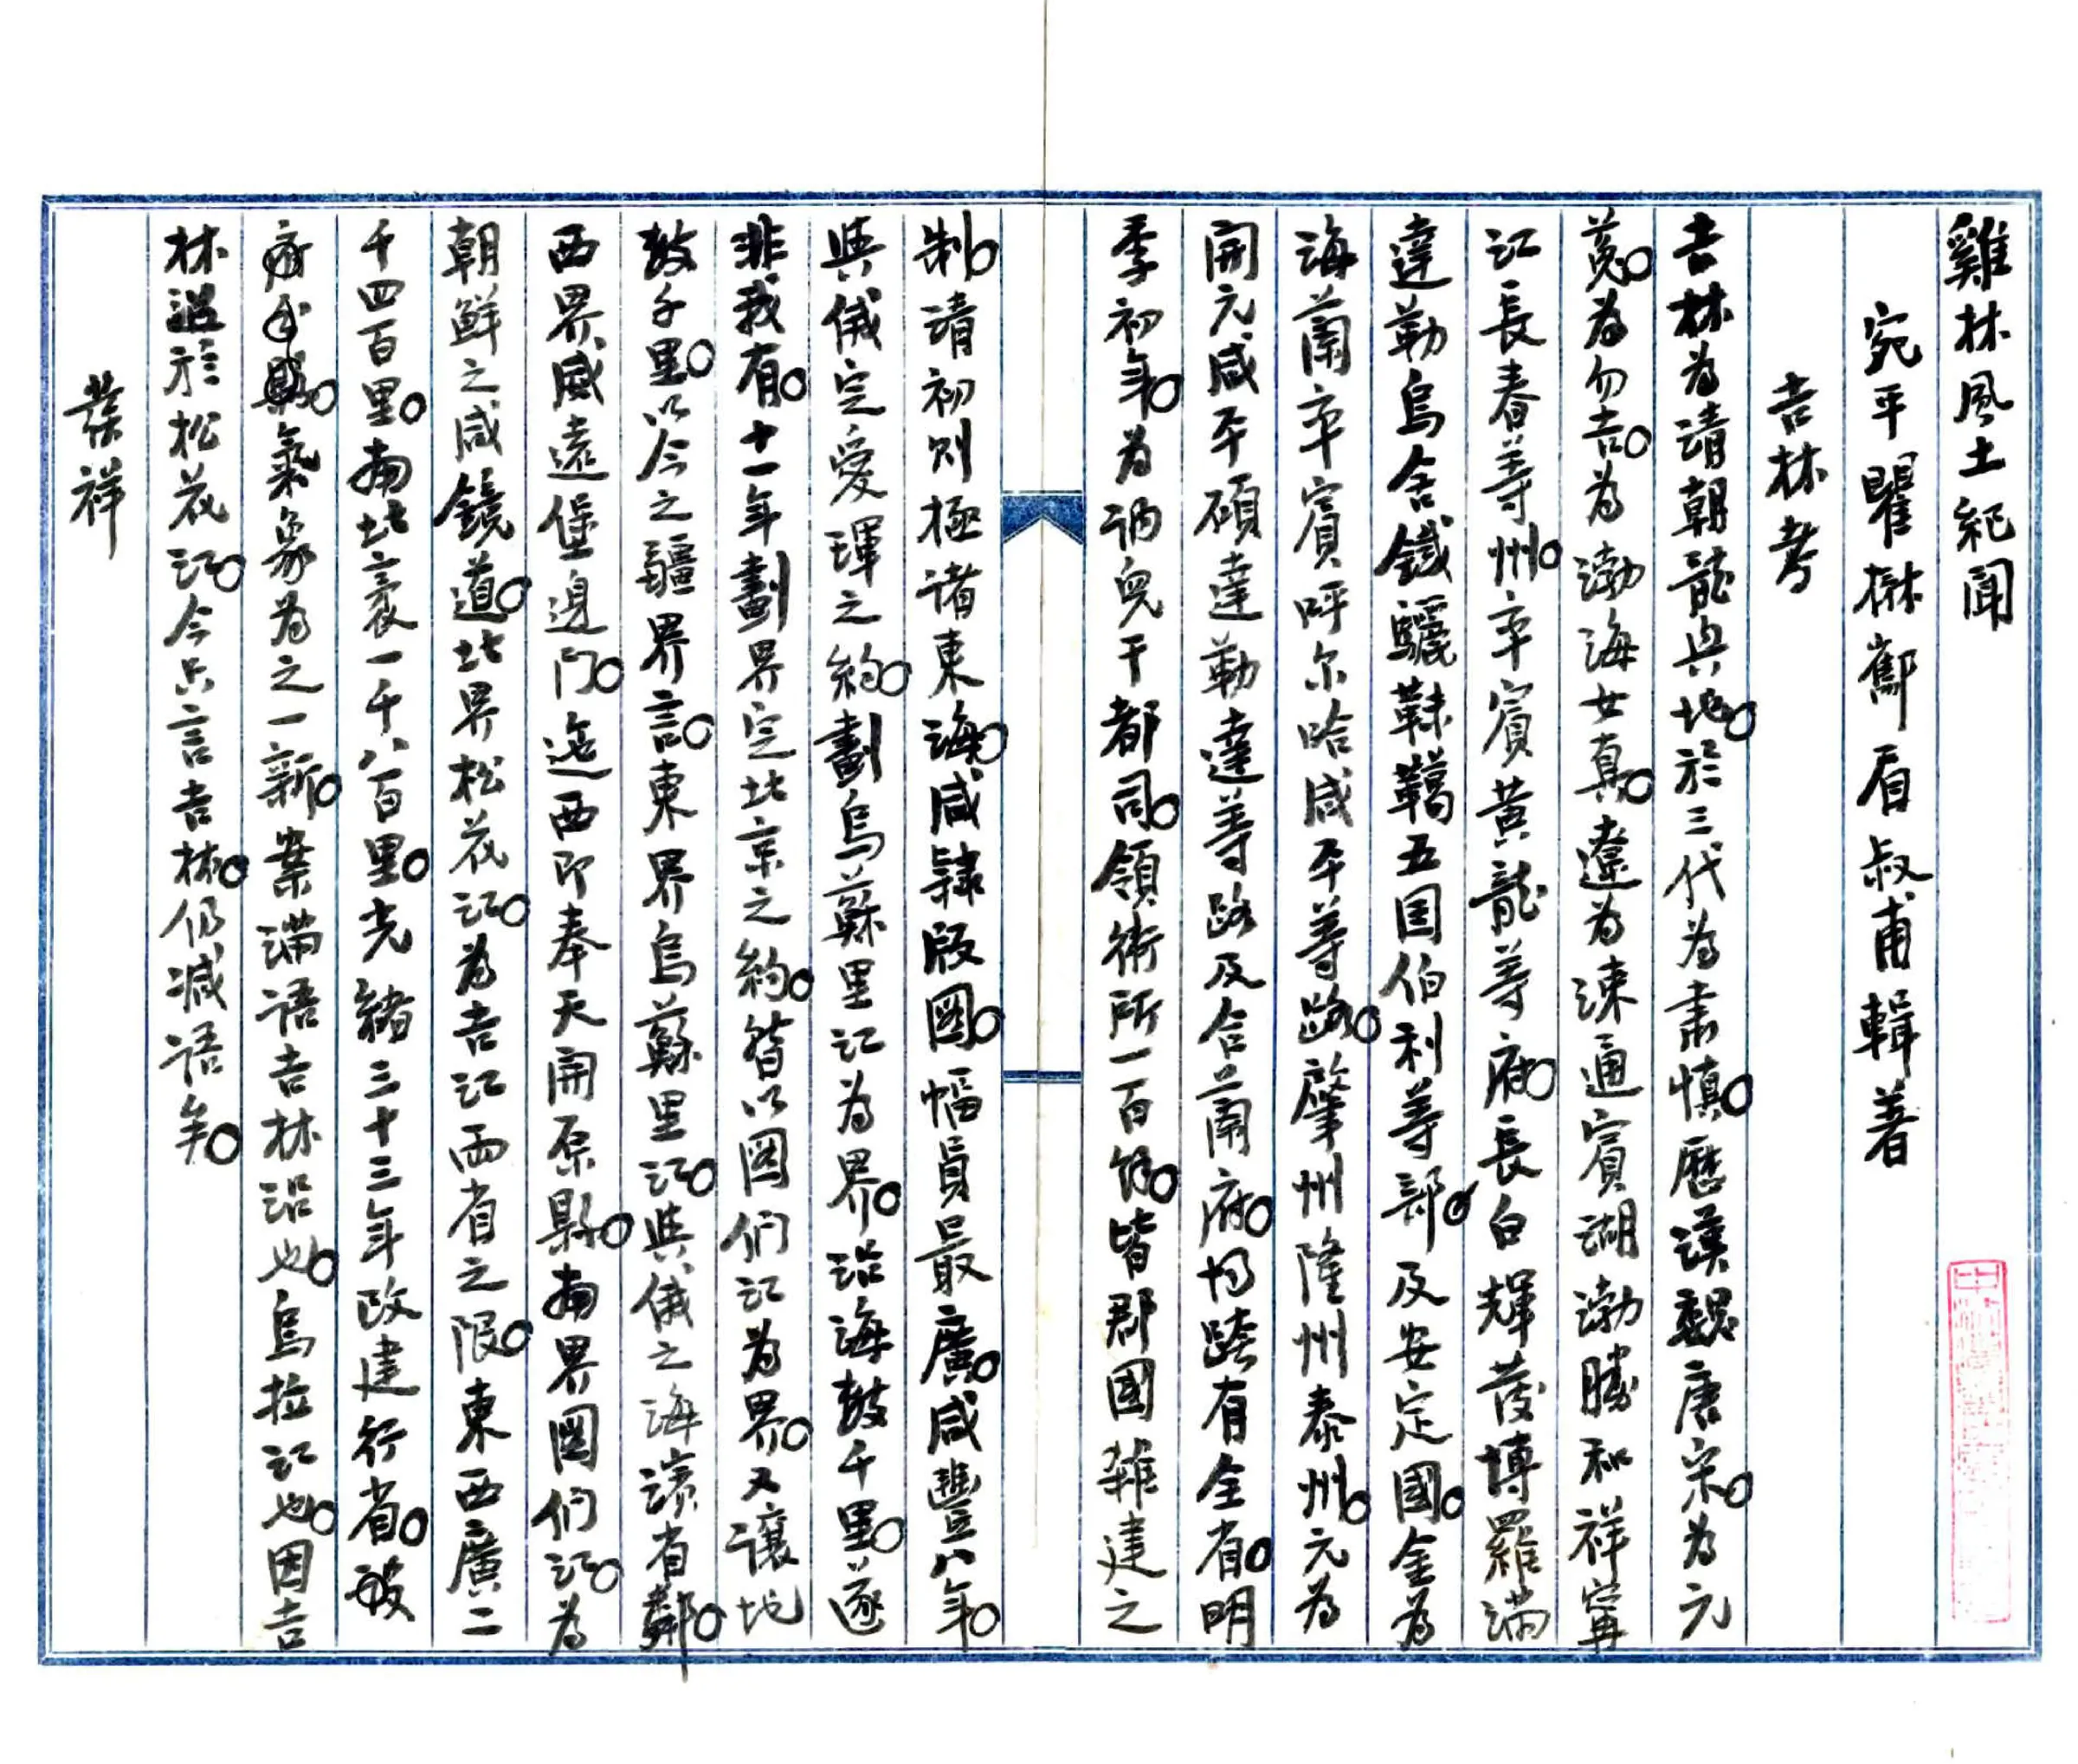 雞林風土紀聞
宛平瞿樾酃眉叔甫輯著
吉林考
吉林為清朝龍興地。於三代為肅慎。歷漢魏唐宋。為元
菟。為勿吉。為渤海女真。遼為涑通賓湖渤勝和祥寧
江長春等州。率賓黃龍等府。長白輝發博羅滿
達勒烏舍鐵驪靺鞨五国伯利等部。及安定國。金為
海蘭率賓呼尔哈咸平等路。肇州隆州泰州。元為
開元咸平碩達勒達等路及合蘭府。均跨有全省。明
季初年。為讷兒干都司。領衛所一百餘。皆郡國雜建之
制。清初則極诸東海。咸隸版圖。幅員最廣。咸豐八年。
與俄定愛琿之約。劃烏蘇里江為界。沿海數千里。遂
非我有。十一年劃界定北京之約。皆以图们江為界。又讓地
數千里。以今之疆界言。東界烏蘇里江。與俄之海濱省鄰。
西界威遠堡邊门。迤西即奉天開原縣。南界图们江。為
朝鮮之咸鏡道。北界松花江。為吉江兩省之限。東西廣二
千四百里。南北袤一千八百里。光緒三十三年改建行省。設
氣象為之一新。案满语吉林沿也。烏拉江也。因吉
林沿於松花江。今只言吉林。仍减语矣。
葉祥